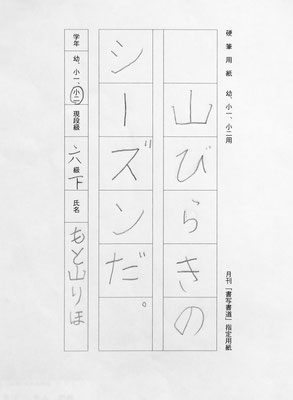 硬筆用紙 幼、小一、小二用
山びらきの
シーズンだ。
学年 幼、小一、小二 現段級 六級下 氏名 もと山りほ
月刊「書写書道」指定用紙